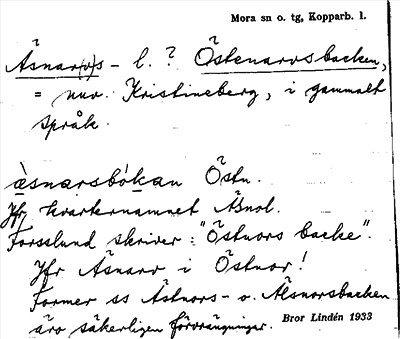 Mora sn o. tg, Kopparb. l.
Åsnar(v)s - l. ? Östenarvsbacken,
= nuv. Kristineberg, i gammalt
språk.
åsnarsbòkan Östn.
Jfr kvarternamnet Åsnol.
Forsslund skriver: "Östnors backe".
Jfr Åsnarr i Östnor!
Former ss Åstnors- o. Älsnorsbacken
äro säkerligen förvrängningar.
Bror Lindén 1933